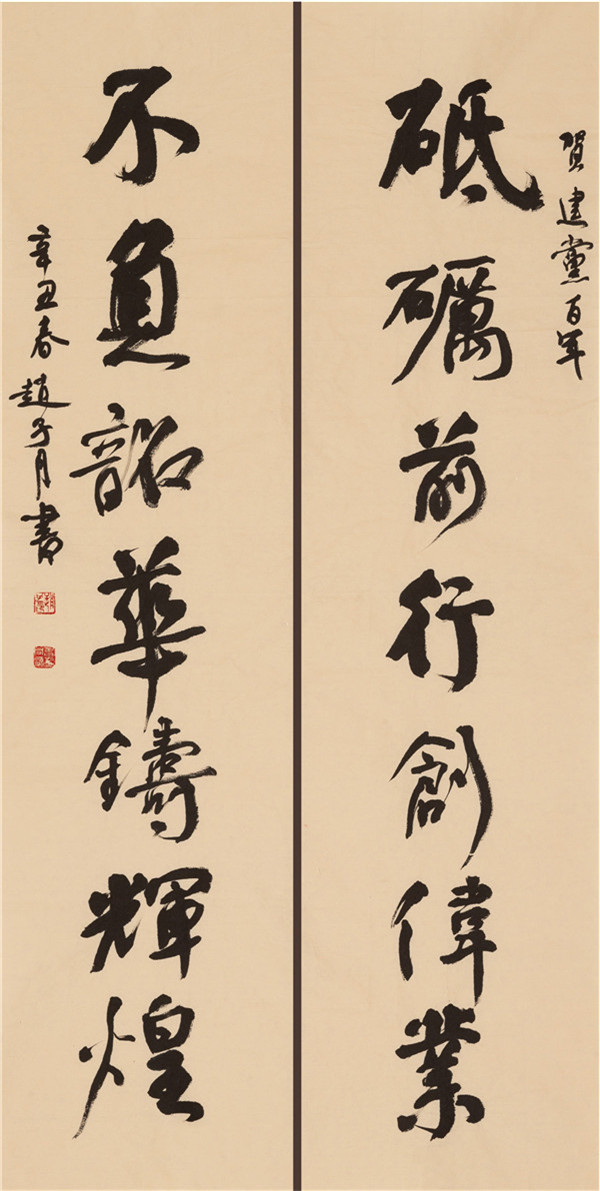 賀建黨百年
砥礪前行創偉業
不負韶華鑄輝煌
辛丑春趙子月書